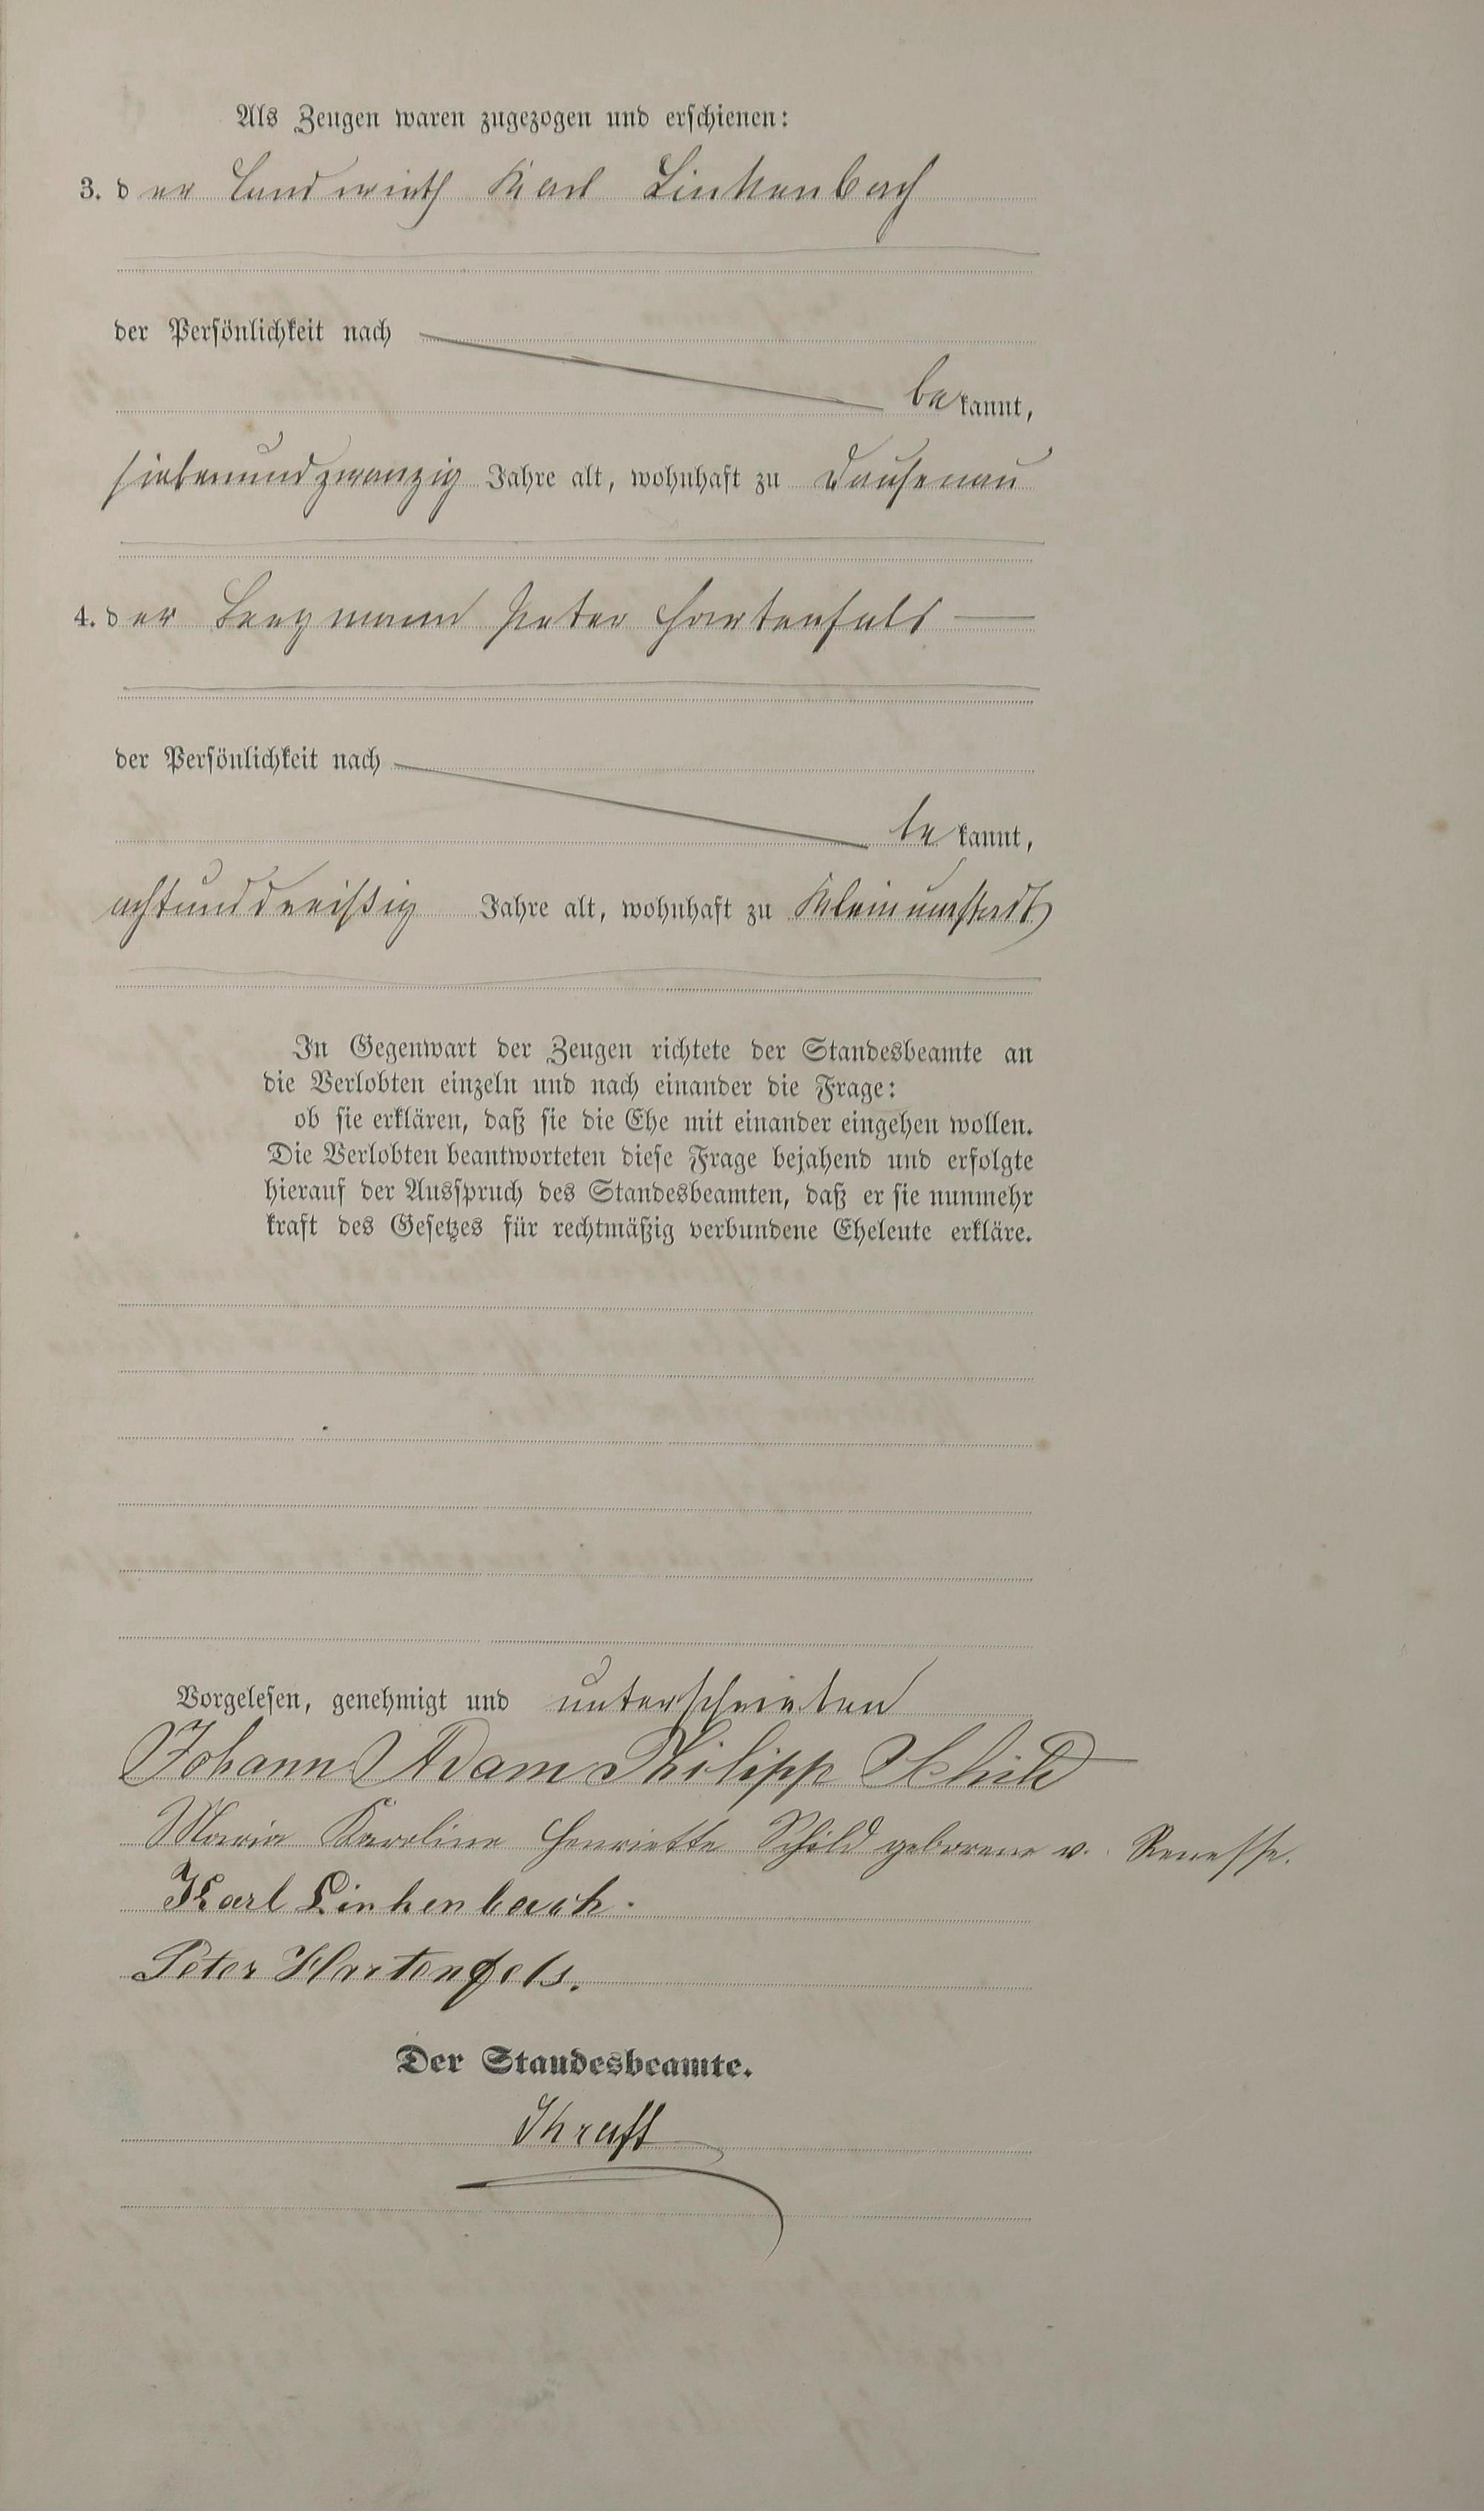 Als Zeugen waren zugezogen und erschienen:
3. der Landwirth Karl Linkenbach
der Persönlichkeit nach
bekannt,
siebenundzwanzig Jahre alt, wohnhaft zu Dausenau
4. der Bergmann Peter Hartenfels
der Persönlichkeit nach
bekannt,
achtunddreißig Jahre alt, wohnhaft zu
In Gegenwart der Zeugen richtete der Standesbeamte an
die Verlobten einzeln und nach einander die Frage:
ob sie erklären, daß sie die Ehe mit einander eingehen wollen.
Die Verlobten beantworteten diese Frage bejahend und erfolgte
hierauf der Ausspruch des Standesbeamten, daß er sie nunmehr
kraft des Gesetzes für rechtmäßig verbundene Eheleute erkläre.
Vorgelesen, genehmigt und unterschrieben
Johann Adam Philipp Schild
Maria Karoline Henriette Schild geborene v. Renesse.
Karl Linkenbach.
Peter Hartenfels.
Der Standesbeamte.